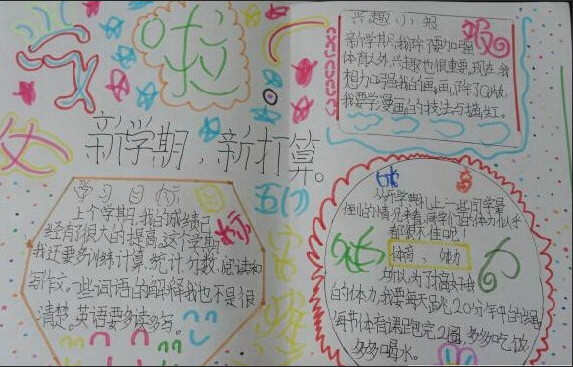 兴趣小报
新学期,我除了要加强
体育以外,兴趣也很重要,现在,我
想加强我的画画,除了Q版,
我要学漫画的技法与描红。
新学期,新打算。
学习目标
上个学期,我的成绩已
经有很大的提高,这个学期
我还要多训练计算、统计、分数、阅读和
写作文。一些词语的解释我也不是很
清楚。英语要多读多写。
从开学典礼上一些同学晕
倒的情况来看,同学们的体力似乎
都很不佳呢!
体育、体力
为了提高好自
己的体力,我要每天跳20分钟的绳
每节体育课跑完2圈,多多吃饭
多多喝水。